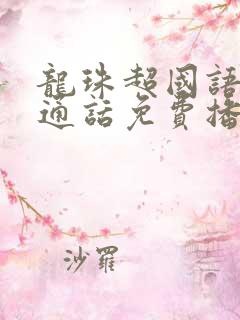 龍珠超國語
通話免費播
沙羅